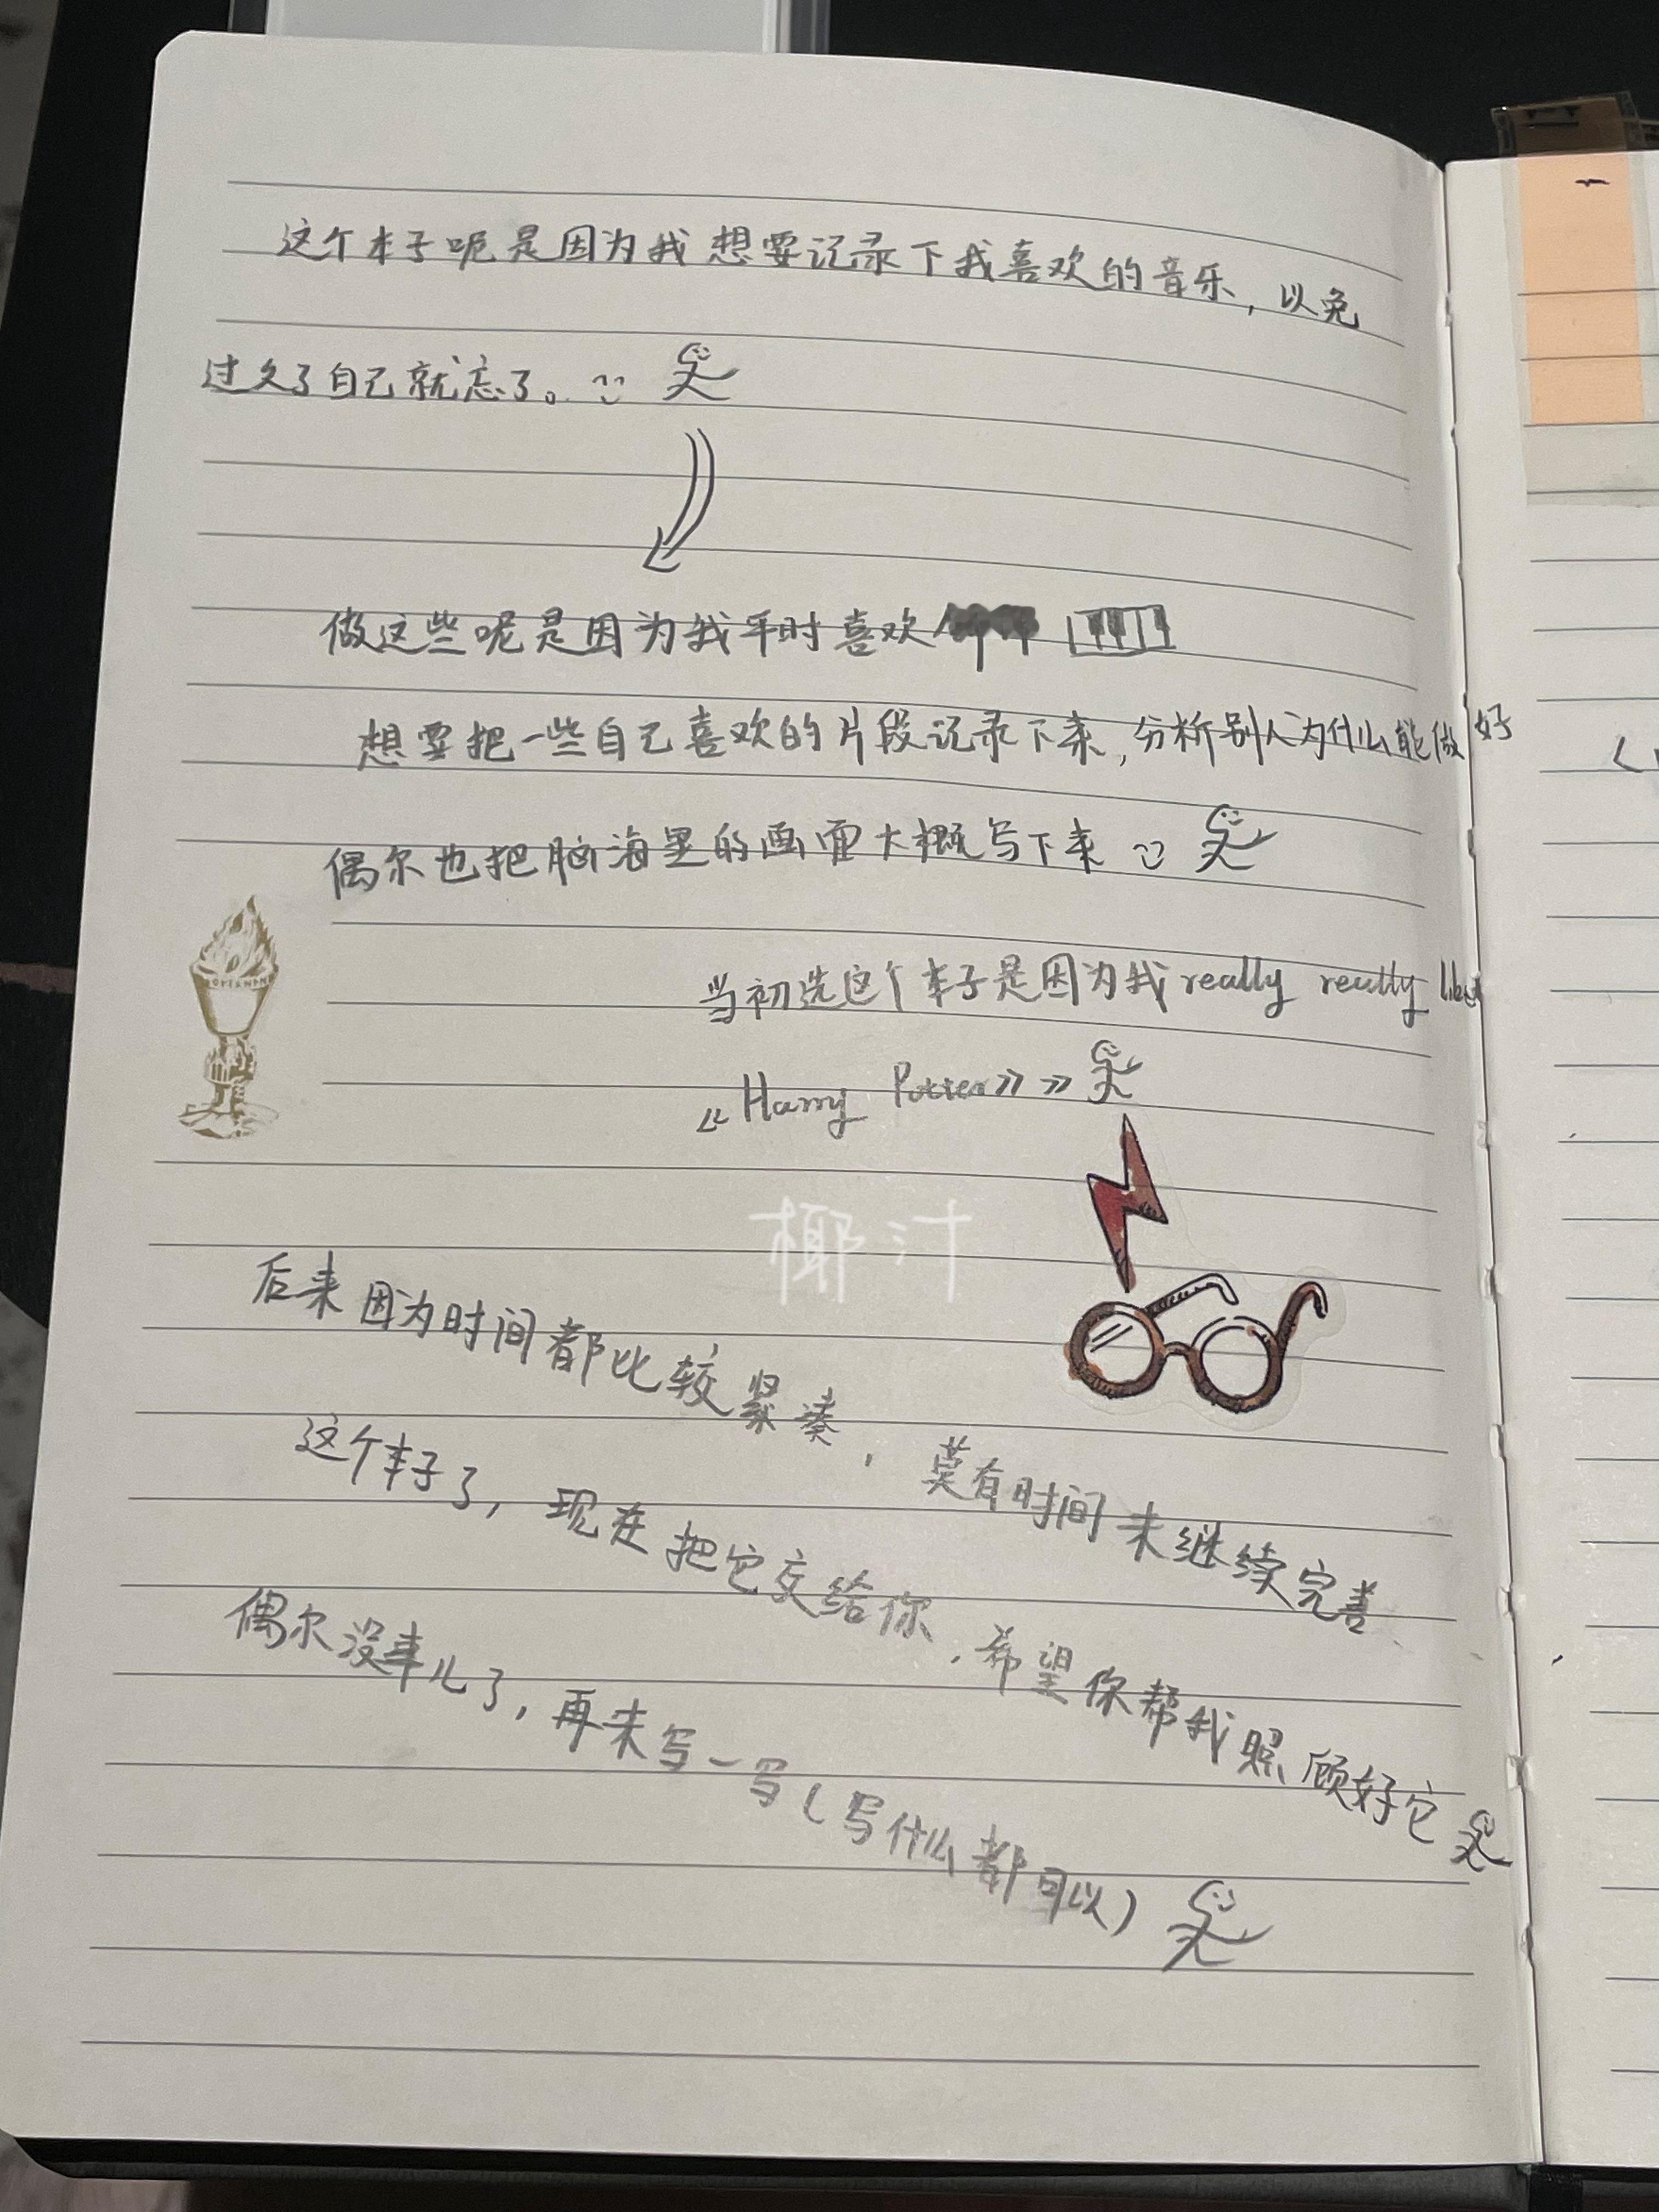 这个本子呢是因为我想要记录下我喜欢的音乐，以免
过久了自己就忘了。
做这些呢是因为我平时喜欢
想要把一些自己喜欢的片段记录下来，分析别人为什么能做好
偶尔也把脑海里的画面大概写下来
当初选这个本子是因为我 really really like
《Harry Potter》》
椰汁
后来因为时间都比较紧凑，莫有时间来继续完善
这个本子了，现在把它交给你，希望你帮我照顾好它
偶尔没事儿了，再来写一写（写什么都可以）